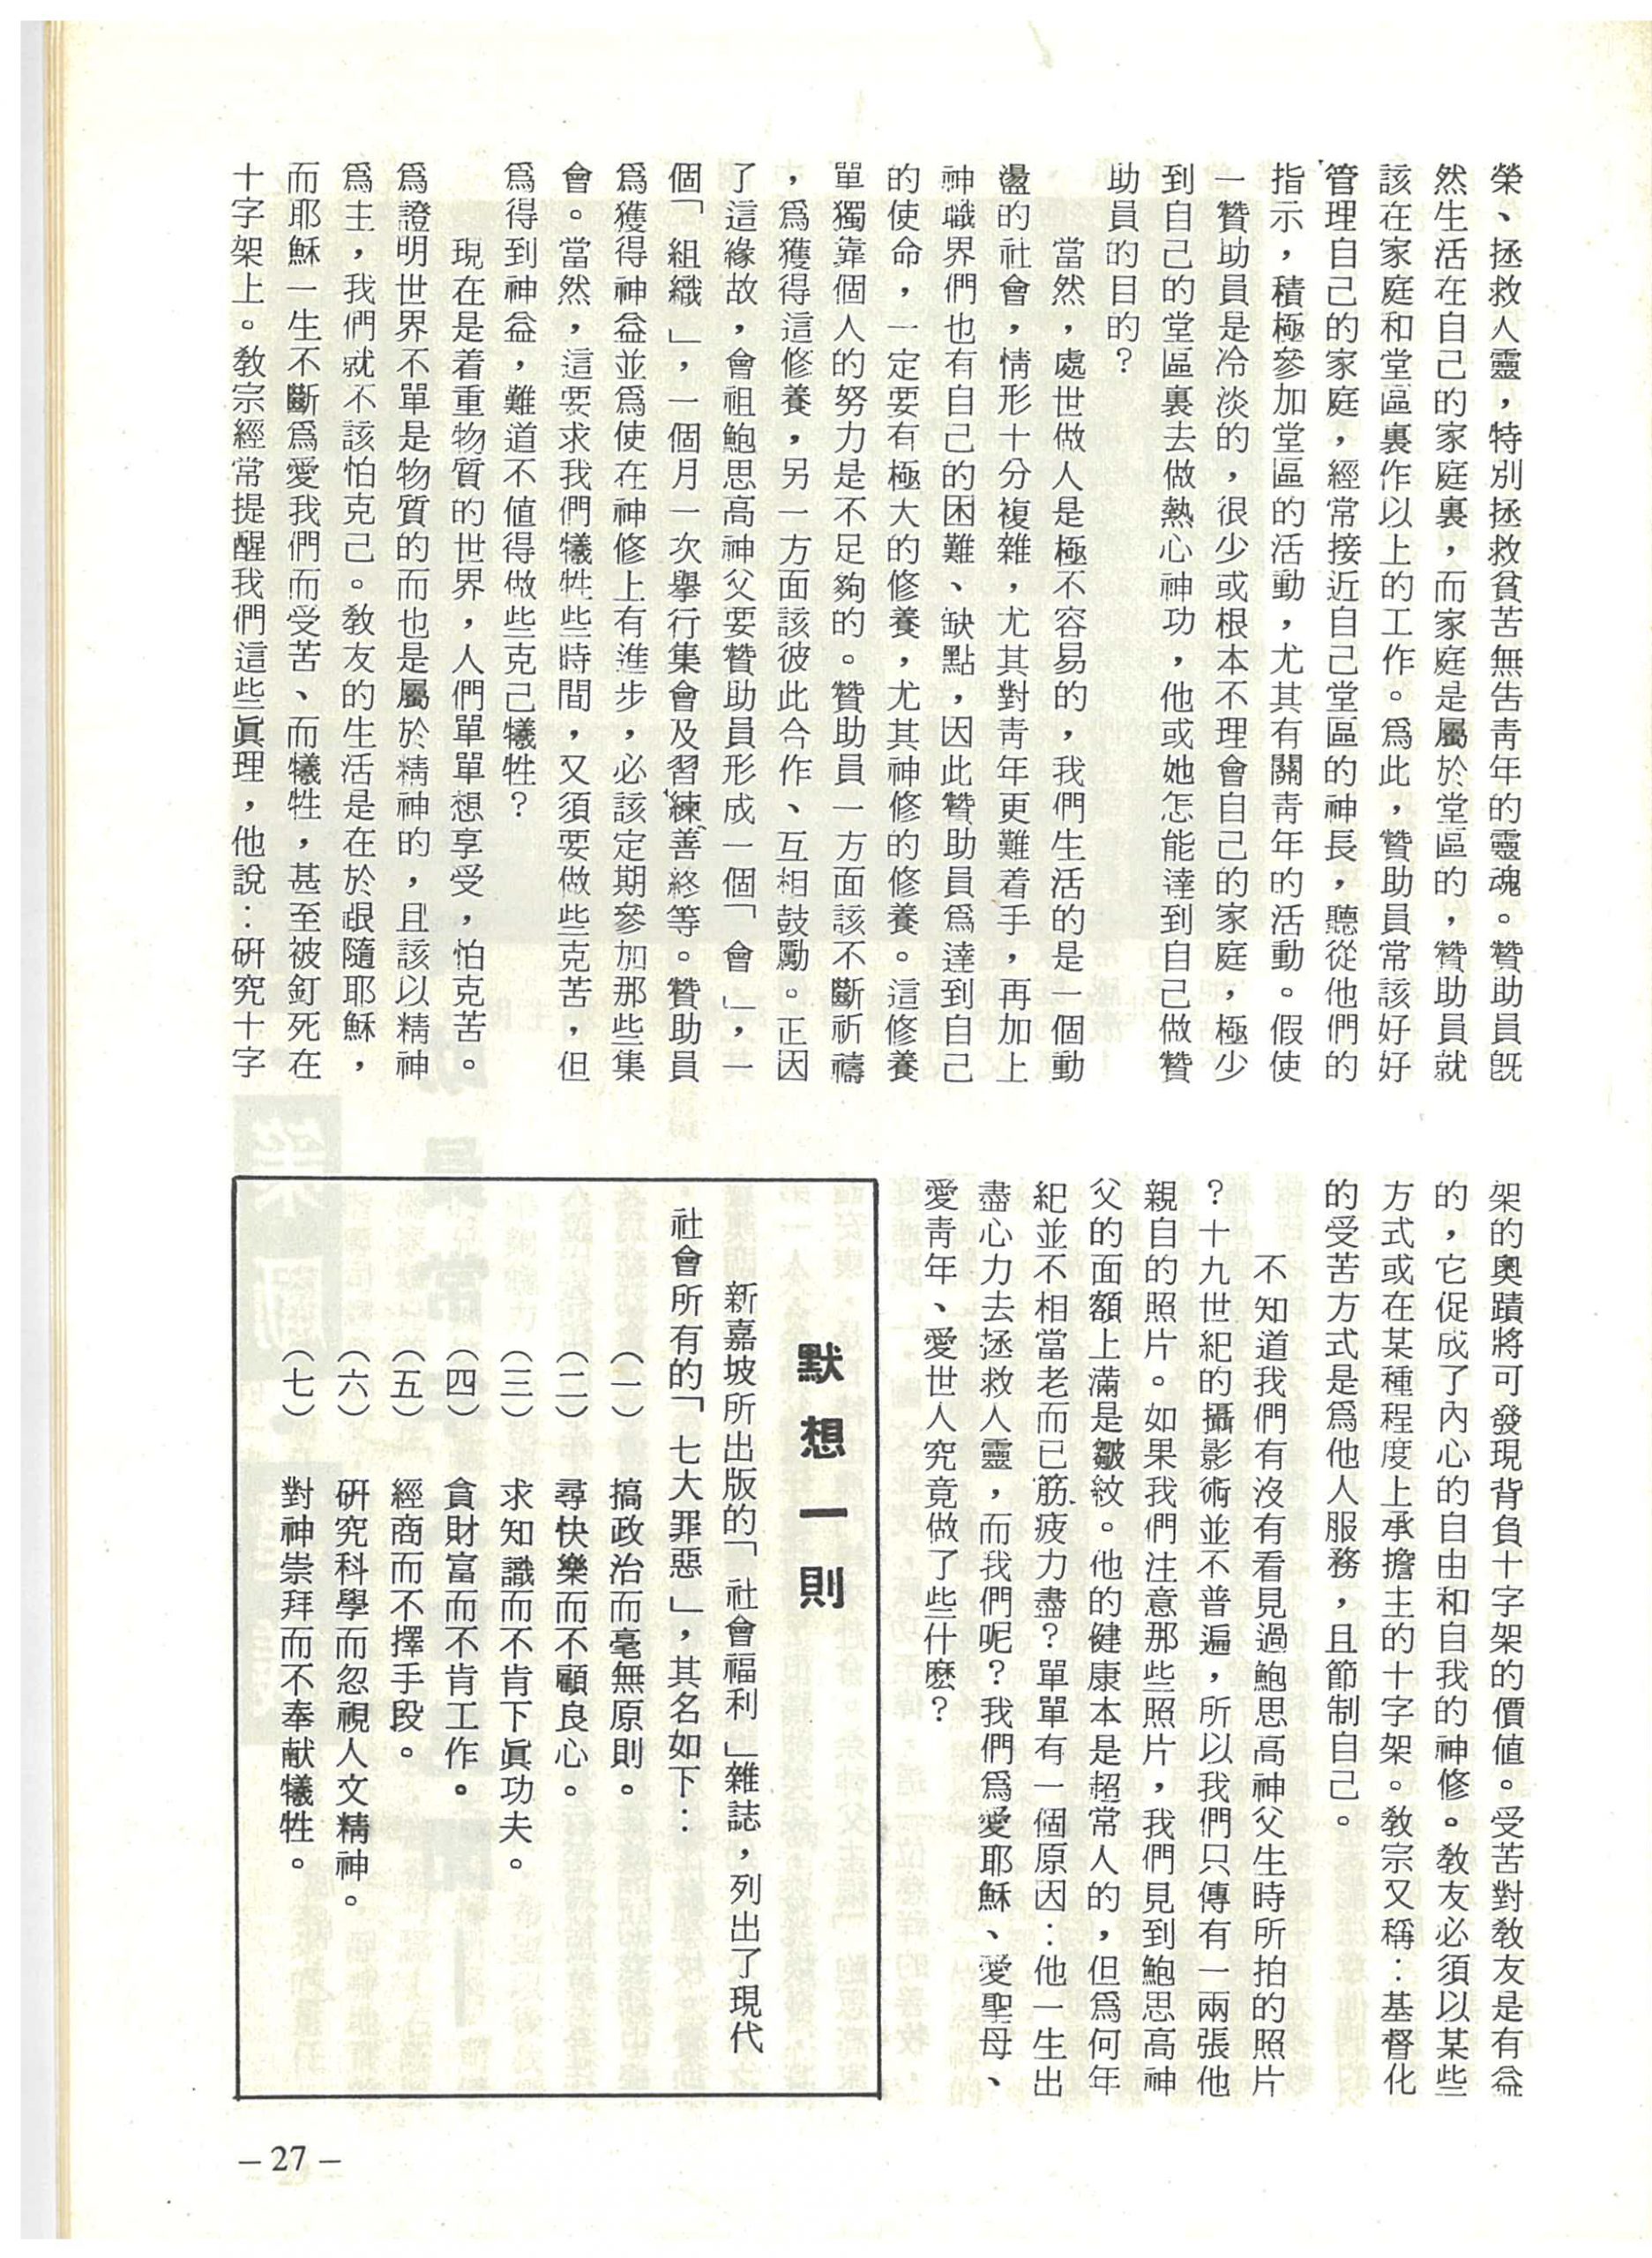 榮、拯救人靈，特別拯救貧苦無告靑年的靈魂。贊助員旣
然生活在自己的家庭裏，而家庭是屬於堂區的，贊助員就
該在家庭和堂區裏作以上的工作。爲此，贊助員常該好好
管理自己的家庭，經常接近自己堂區的神長，聽從他們的
指示，積極參加堂區的活動，尤其有關靑年的活動。假使
一贊助員是冷淡的，很少或根本不理會自己的家庭，極少
到自己的堂區裏去做熱心神功，他或她怎能達到自己做贊
助員的目的？
當然，處世做人是極不容易的，我們生活的是一個動
盪的社會，情形十分複雜，尤其對靑年更難着手，再加上
神職界們也有自己的困難、缺點，因此贊助員爲達到自己
的使命，一定要有極大的修養，尤其神修的修養。這修養
單獨靠個人的努力是不足夠的。贊助員一方面該不斷祈禱
，爲獲得這修養，另一方面該彼此合作、互相鼓勵。正因
了這緣故，會祖鮑思高神父要贊助員形成一個「會」，一
個「組織」，一個月一次舉行集會及習練善終等。贊助員
爲獲得神益並爲使在神修上有進步，必該定期參加那些集
會。當然，這要求我們犧牲些時間，又須要做些克苦，但
爲得到神益，難道不值得做些克己犧牲？
現在是着重物質的世界，人們單單想享受，怕克苦。
爲證明世界不單是物質的而也是屬於精神的，且該以精神
爲主，我們就不該怕克己。敎友的生活是在於跟隨耶穌，
而耶穌一生不斷爲愛我們而受苦、而犧牲，甚至被釘死在
十字架上。敎宗經常提醒我們這些眞理，他說：研究十字
架的奧蹟將可發現背負十字架的價值。受苦對敎友是有益
的，它促成了內心的自由和自我的神修。敎友必須以某些
方式或在某種程度上承擔主的十字架。敎宗又稱：基督化
的受苦方式是爲他人服務，且節制自己。
不知道我們有沒有看見過鮑思高神父生時所拍的照片
？十九世紀的攝影術並不普遍，所以我們只傳有一兩張他
親自的照片。如果我們注意那些照片，我們見到鮑思高神
父的面額上滿是皺紋。他的健康本是超常人的，但爲何年
紀並不相當老而已筋疲力盡？單單有一個原因：他一生出
盡心力去拯救人靈，而我們呢？我們爲愛耶穌、愛聖母、
愛靑年、愛世人究竟做了些什麽？
默想一則
新嘉坡所出版的「社會福利」雜誌，列出了現代
社會所有的「七大罪惡」，其名如下：
（一）　搞政治而毫無原則。
（二）　尋快樂而不顧良心。
（三）　求知識而不肯下眞功夫。
（四）　貪財富而不肯工作。
（五）　經商而不擇手段。
（六）　研究科學而忽視人文精神。
（七）　對神崇拜而不奉献犧牲。
– 27 –